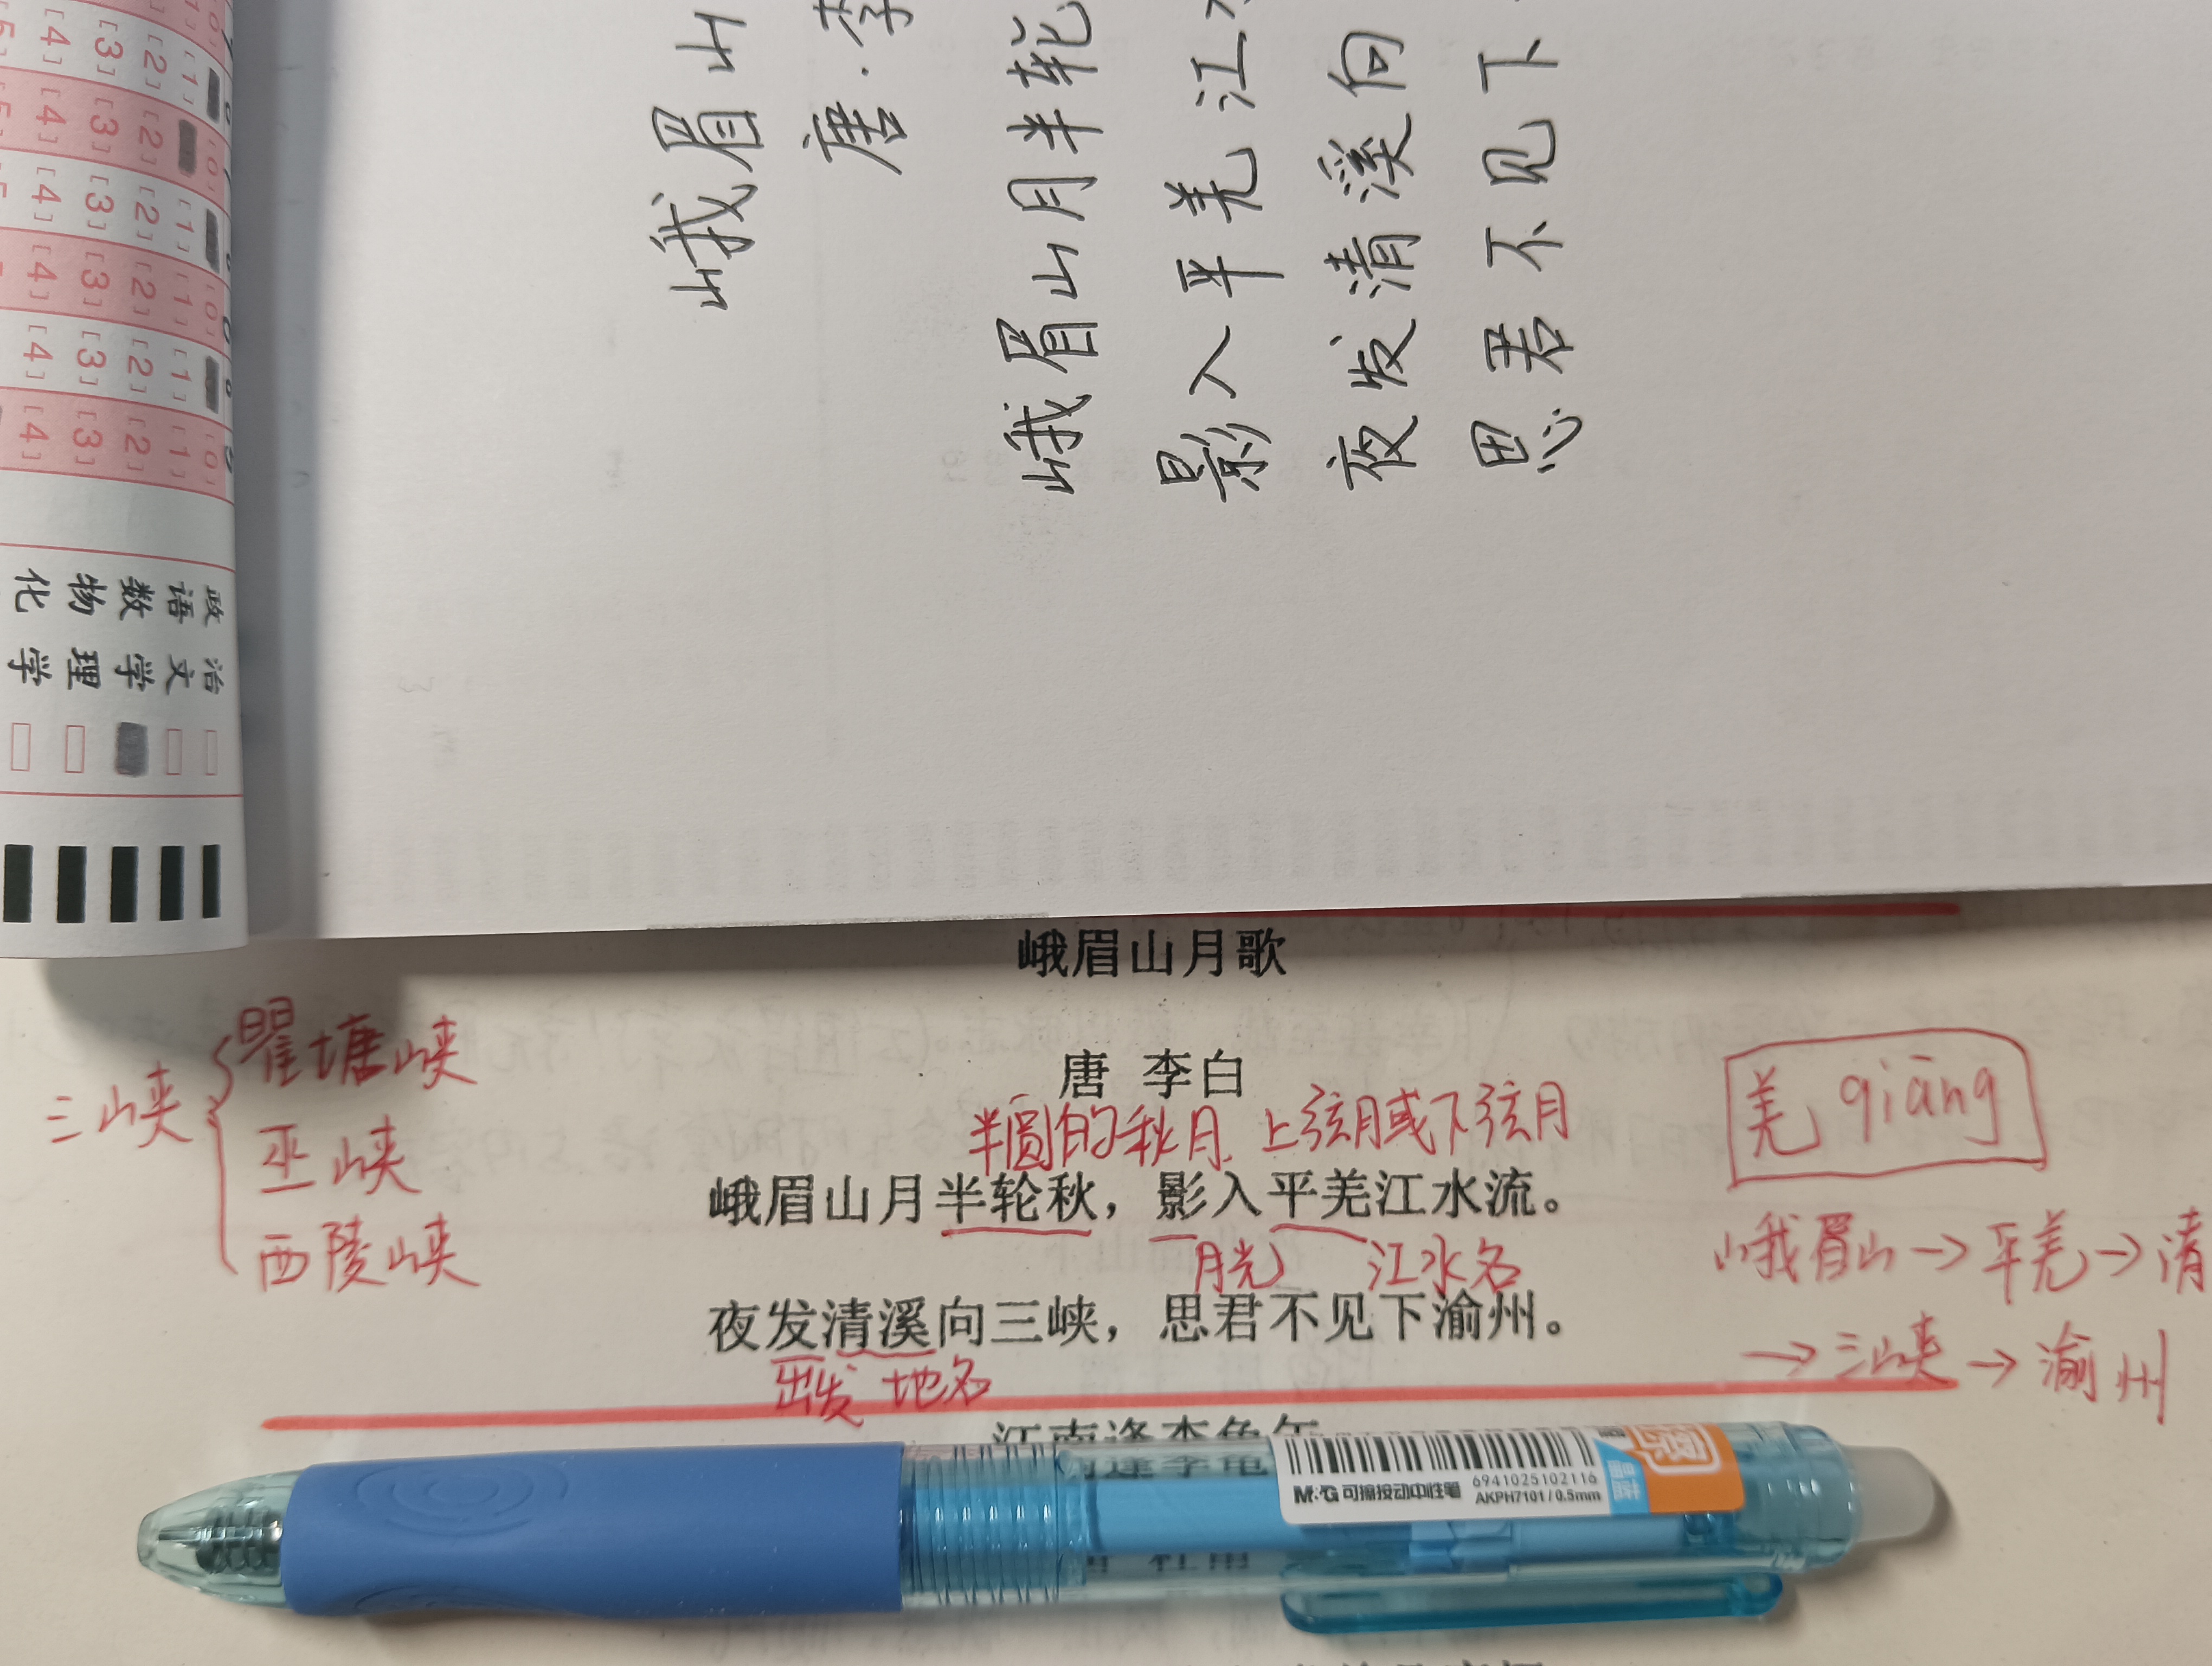 峨眉山
唐·李
峨眉山月半轮
影入平羌江水
夜发清溪向
思君不见下
[0] [1] [2] [3] [4]
政治
语文
数学
物理
化学
峨眉山月歌
唐 李白
半圆的秋月 上弦月或下弦月
峨眉山月半轮秋，影入平羌江水流。
月光 江水名
夜发清溪向三峡，思君不见下渝州。
出发 地名
三峡
瞿塘峡
巫峡
西陵峡
羌 qiāng
峨眉山→平羌→清
→三峡→渝州
江南逢李龟年
M&G 可擦按动中性笔
6941025102116
AKPH7101/0.5mm